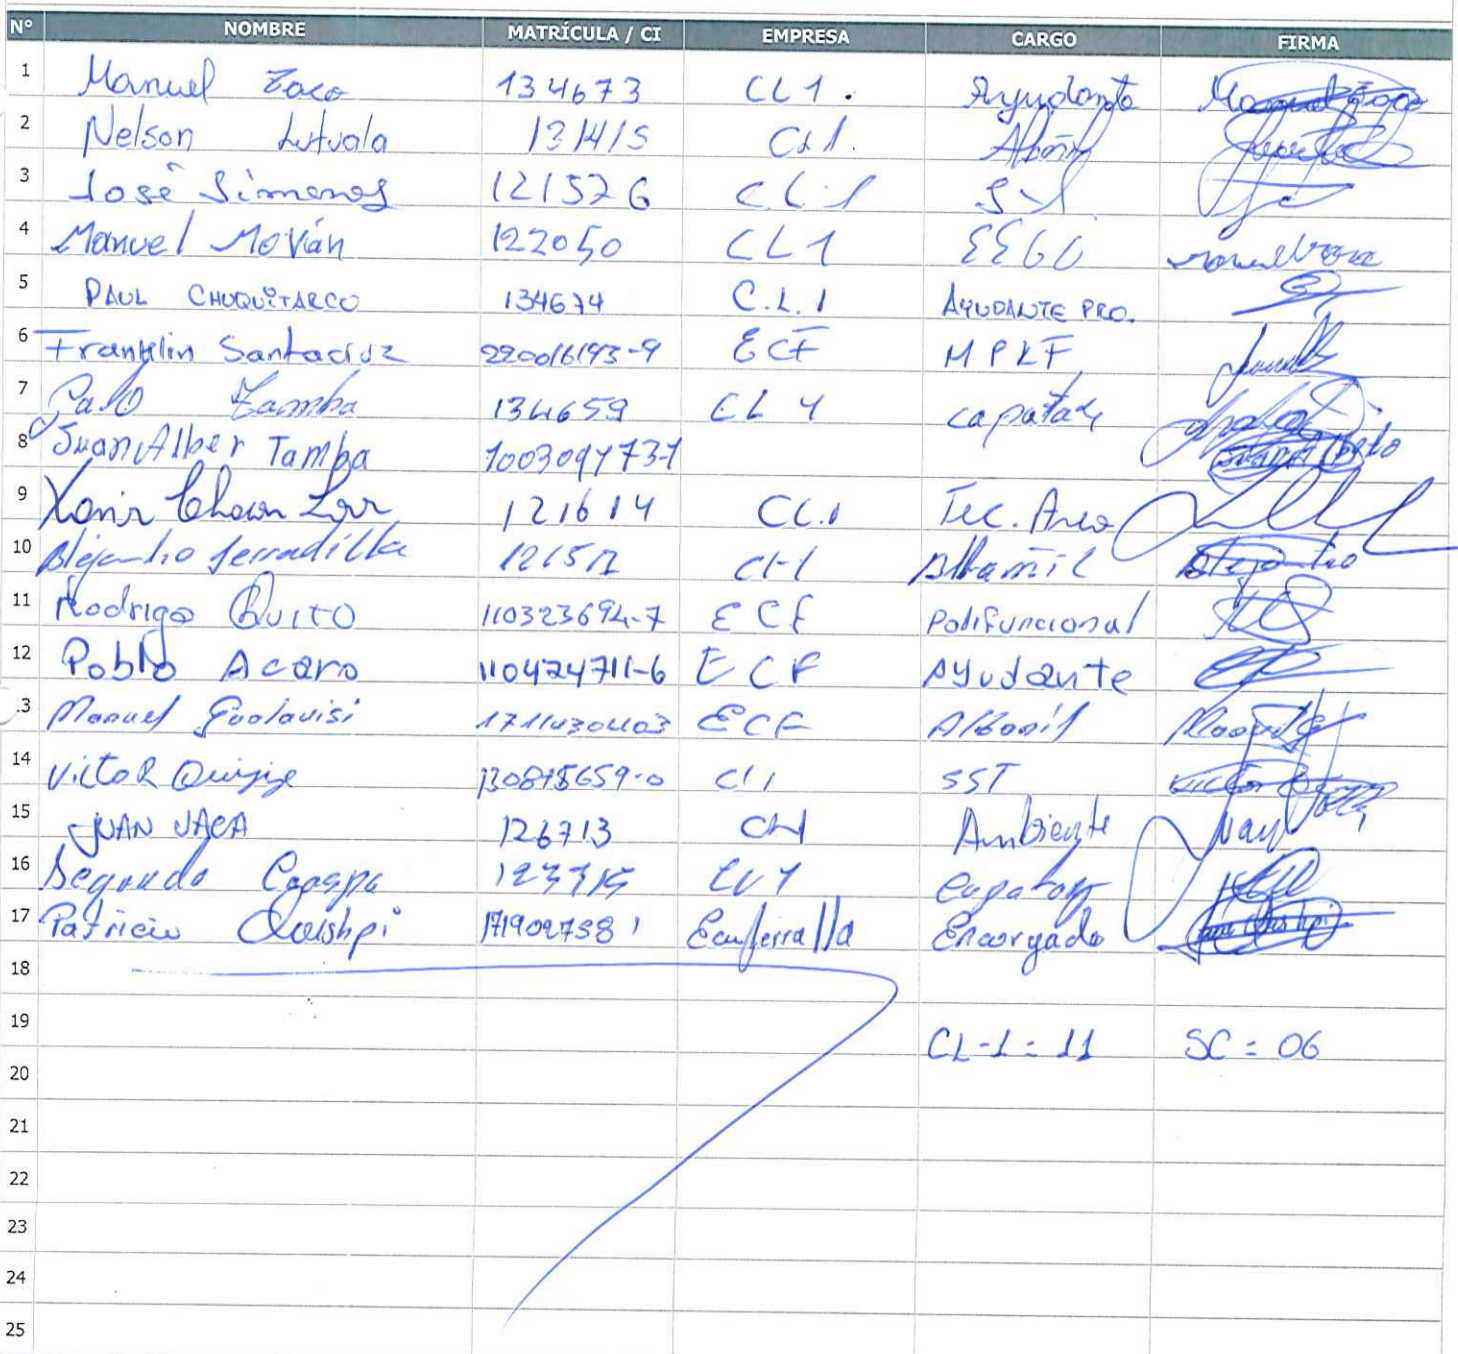 N° NOMBRE MATRÍCULA / CI EMPRESA CARGO FIRMA
1 Manuel Zaco 134673 CL1. Ayudante
2 Nelson Lutuala 131415 CL1. Albañil
3 José Simenos 121526 CL1
4 Manuel Mován 122050 CL1 EEGG
5 PAUL CHUQUITARCO 134674 C.L.1 AYUDANTE PRO.
6 Franklin Santacruz 220016193-9 ECF MPKF
7 Galo Tamba 134659 CL1 capataz
8 Juan Alber Tamba 100309773-1
9 121614 CL.1 Tec. Area
10 Alejandro Serradilla CL1 Albañil Alejandro
11 Rodrigo Quito 110323694-7 ECF Polifuncional
12 Pablo Acaro 110424711-6 ECF Ayudante
13 Manuel Gualavisi ECF Albañil
14 Victor Quijije 130875659-0 CL1 SST
15 JUAN VACA 126713 CL1 Ambiente Juan
16 Segundo CL1 Capataz
17 Patricio Quishpi 171902758 1 Ecuferralla Encargado
18
19 CL-1 = 11 SC = 06
20
21
22
23
24
25